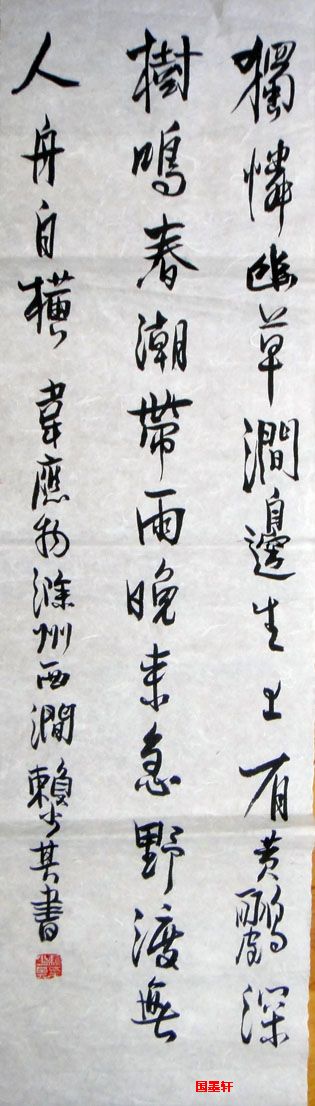 獨憐幽草澗邊生上有黃鸝深
樹鳴春潮帶雨晚来急野渡無
人舟自橫 韋應物滁州西澗賴少其書
国墨轩